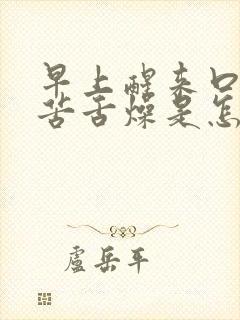 早上醒来口
苦舌燥是怎
盧岳平